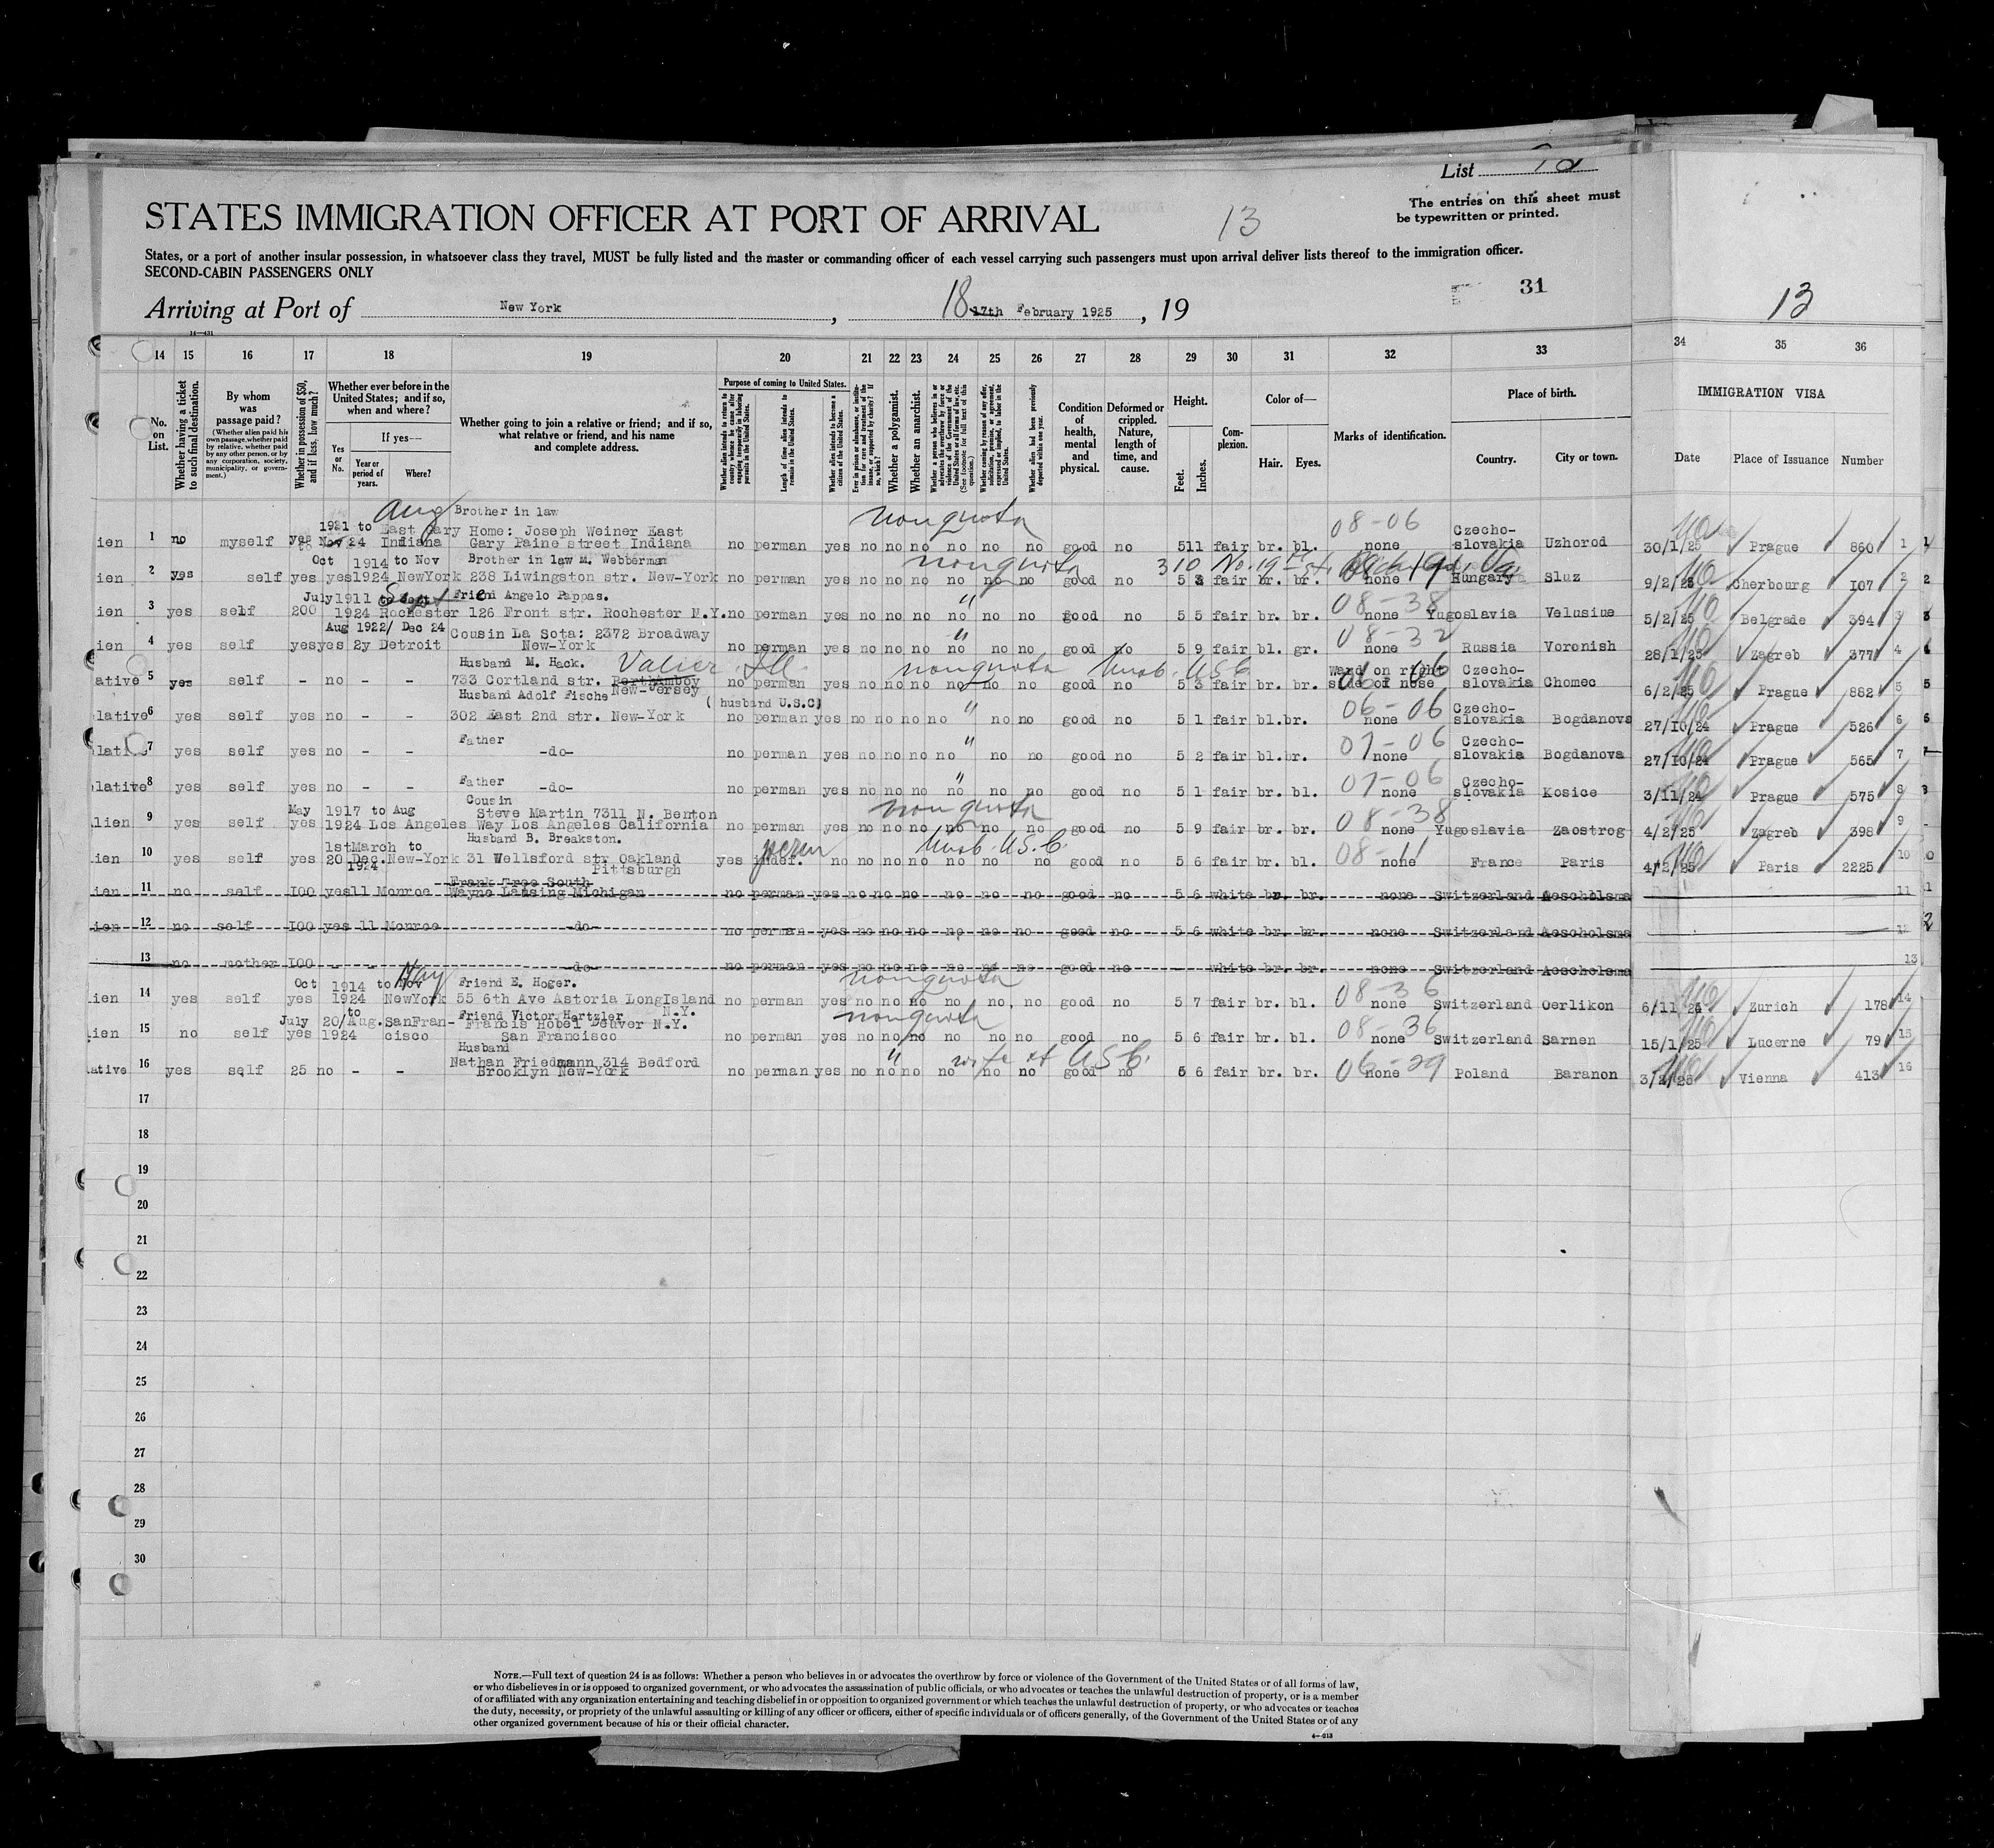 List
The entries on this sheet must
be typewritten or printed.
STATES IMMIGRATION OFFICER AT PORT OF ARRIVAL
13
States, or a port of another insular possession, in whatsoever class they travel, MUST be fully listed and the master or commanding officer of each vessel carrying such passengers must upon arrival deliver lists thereof to the immigration officer.
SECOND-CABIN PASSENGERS ONLY
31
13
Arriving at Port of New York, 18 17th February 1925, 19
14 15 16 17 18 19 20 21 22 23 24 25 26 27 28 29 30 31 32 33 34 35 36
No. on List.
Whether having a ticket to such final destination.
By whom was passage paid?
(Whether alien paid his own passage, whether paid by relative, whether paid by any other person, or by any corporation, society, municipality, or government.)
Whether in possession of $50, and if less, how much?
Whether ever before in the United States; and if so, when and where?
Yes or No.
If yes—
Year or period of years.
Where?
Whether going to join a relative or friend; and if so, what relative or friend, and his name and complete address.
Purpose of coming to United States.
Whether alien intends to return to country whence he came after engaging temporarily in laboring pursuits in the United States.
Length of time alien intends to remain in the United States.
Whether alien intends to become a citizen of the United States.
Ever in prison or almshouse, or institution for care and treatment of the insane, or supported by charity? If so, which?
Whether a polygamist.
Whether an anarchist.
Whether a person who believes in or advocates the overthrow by force or violence of the Government of the United States or all forms of law, etc. (See footnote for full text of this question.)
Whether coming by reason of any offer, solicitation, promise, or agreement, expressed or implied, to labor in the United States.
Whether alien had been previously deported within one year.
Condition of health, mental and physical.
Deformed or crippled. Nature, length of time, and cause.
Height.
Feet. Inches.
Complexion.
Color of—
Hair. Eyes.
Marks of identification.
Place of birth.
Country. City or town.
IMMIGRATION VISA
Date Place of Issuance Number
Aug Brother in law nonquota 08-06
1921 to East Gary Home: Joseph Weiner East Czecho-
ien 1 no myself yes Nov 24 Indiana Gary Paine street Indiana no perman yes no no no no no no good no 511 fair br. bl. none slovakia Uzhorod 30/1/25 Prague 860 1
Oct 1914 to Nov Brother in law M. Webberman nonquota 310 No. 19th St. Richmond, Va.
ien 2 yes self yes yes1924 NewYork 238 Liwingston str. New-York no perman yes no no no no no no good no 5 3 fair br. br. none Hungary Sluz 9/2/25 Cherbourg 107 2
July1911 to Sept Friend Angelo Pappas. " 08-38
ien 3 yes self 200 1924 Rochester 126 Front str. Rochester N.Y. no perman yes no no no no no no good no 5 5 fair br. br. none Yugoslavia Velusiue 5/2/25 Belgrade 394 3
Aug 1922/ Dec 24 Cousin La Sota: 2372 Broadway " 08-32
ien 4 yes self yesyes 2y Detroit New-York no perman yes no no no no no no good no 5 9 fair bl. gr. none Russia Voronish 28/1/25 Zagreb 377 4
Husband M. Hack. Valier Ill. nonquota Husb. USC Ward on right Czecho-
ative 5 yes self - no - - 733 Cortland str. Perthamboy New-Jersey no perman yes no no no no no no good no 5 3 fair br. br. side of nose slovakia Chomec 6/2/25 Prague 882 5
Husband Adolf Fische (husband U.S.C) " 06-06 Czecho-
lative 6 yes self yes no - - 302 East 2nd str. New-York no perman yes no no no no no no good no 5 1 fair bl. br. none slovakia Bogdanova 27/10/24 Prague 526 6
Father " 07-06 Czecho-
lative 7 yes self yes no - - -do- no perman yes no no no no no no good no 5 2 fair bl. br. none slovakia Bogdanova 27/10/24 Prague 565 7
Father " 07-06 Czecho-
lative 8 yes self yes no - - -do- no perman yes no no no no no no good no 5 1 fair br. bl. none slovakia Kosice 3/11/24 Prague 575 8
May 1917 to Aug Cousin Steve Martin 7311 N. Benton nonquota 08-38
lien 9 yes self yes 1924 Los Angeles Way Los Angeles California no perman yes no no no no no no good no 5 9 fair br. br. none Yugoslavia Zaostrog 4/2/25 Zagreb 398 9
1stMarch to Husband B. Breakston. perm Husb. U.S.C. 08-11
ien 10 yes self yes 20 Dec. 1924 New-York 31 Wellsford str Oakland Pittsburgh yes indef. no no no no no no no good no 5 6 fair br. bl. none France Paris 4/2/25 Paris 2225 10
Frank Tree South
ien 11 no self 100 yes11 Monroe Wayne Lansing Michigan no perman yes no no no no no no good no 5 6 white br. br. none Switzerland Aescholsma 11
ien 12 no self 100 yes 11 Monroe -do- no perman yes no no no no no no good no 5 6 white br. br. none Switzerland Aescholsma 12
13 no mother 100 - - -do- no perman yes no no no no no no good no - white br. br. none Switzerland Aescholsma 13
Oct 1914 to Nov May Friend E. Hoger. nonquota 08-36
lien 14 yes self yes 1924 NewYork 55 6th Ave Astoria LongIsland N.Y. no perman yes no no no no no no good no 5 7 fair br. bl. none Switzerland Oerlikon 6/11/24 Zurich 178 14
July 20/ to Aug. SanFran- Friend Victor Hertzler Francis Hobel Deuver N.Y. nonquota 08-36
ien 15 no self yes 1924 cisco San Francisco no perman yes no no no no no no good no 5 6 fair br. bl. none Switzerland Sarnen 15/1/25 Lucerne 79 15
Husband Nathan Friedmann 314 Bedford " wife of USC. 06-29
ative 16 yes self 25 no - - Brooklyn New-York no perman yes no no no no no no good no 5 6 fair br. br. none Poland Baranon 3/2/25 Vienna 413 16
17
18
19
20
21
22
23
24
25
26
27
28
29
30
NOTE.—Full text of question 24 is as follows: Whether a person who believes in or advocates the overthrow by force or violence of the Government of the United States or of all forms of law,
or who disbelieves in or is opposed to organized government, or who advocates the assassination of public officials, or who advocates or teaches the unlawful destruction of property, or is a member
of or affiliated with any organization entertaining and teaching disbelief in or opposition to organized government or which teaches the unlawful destruction of property, or who advocates or teaches
the duty, necessity, or propriety of the unlawful assaulting or killing of any officer or officers, either of specific individuals or of officers generally, of the Government of the United States or of any
other organized government because of his or their official character.